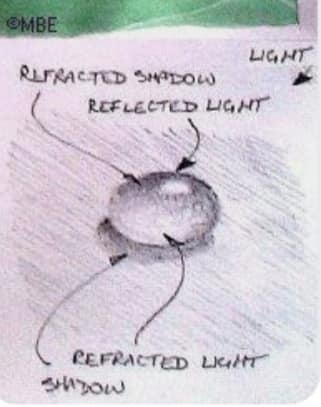 ©MBE
LIGHT
REFRACTED SHADOW
REFLECTED LIGHT
REFRACTED LIGHT
SHADOW